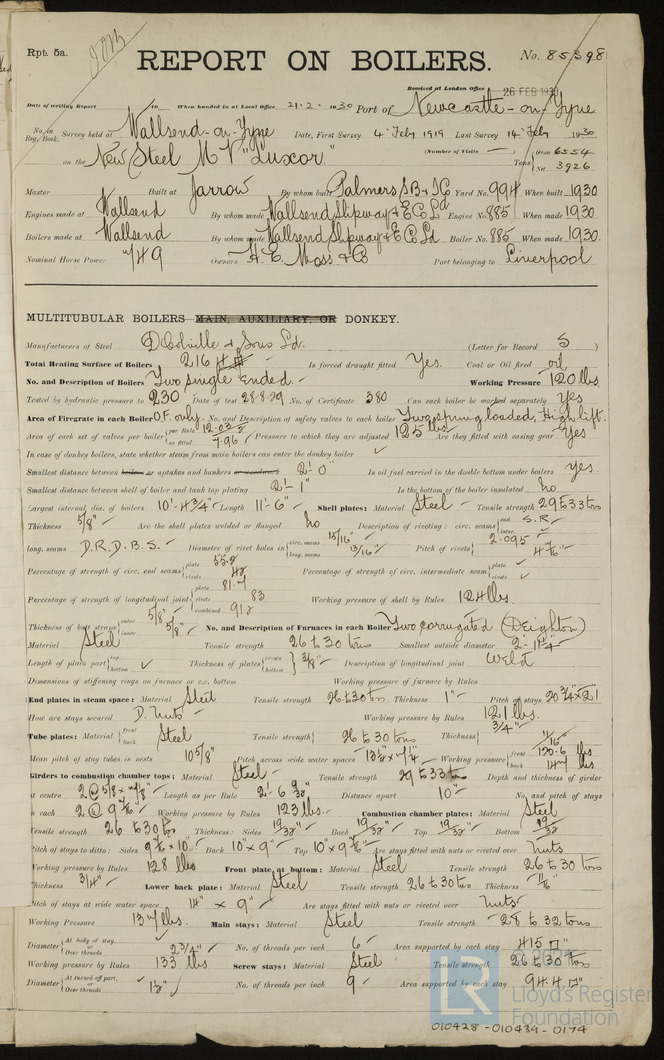 Rpt. 5a.
REPORT ON BOILERS.
No. 85398
Received at London Office 26 FEB 1930
Date of writing Report 19 When handed in at Local Office 21.2.1930 Port of Newcastle-on-Tyne
No. in Reg. Book. Survey held at Wallsend-on-Tyne Date, First Survey 4 Feby 1919 Last Survey 14 Feby 1930
on the New Steel M.V. "Luxor" (Number of Visits —) Tons Gross 6554 Net 3926
Master Built at Jarrow By whom built Palmers S.B. & I.Co Yard No. 994 When built 1930
Engines made at Wallsend By whom made Wallsend Slipway & E Co Ld Engine No. 885 When made 1930
Boilers made at Wallsend By whom made Wallsend Slipway & E Co Ld Boiler No. 885 When made 1930
Nominal Horse Power Owners H. E. Moss & Co Port belonging to Liverpool
MULTITUBULAR BOILERS MAIN, AUXILIARY, OR DONKEY.
Manufacturers of Steel D Colville & Sons Ld. (Letter for Record S)
Total Heating Surface of Boilers 2164 Is forced draught fitted Yes. Coal or Oil fired oil
No. and Description of Boilers Two single Ended. Working Pressure 120 lbs
Tested by hydraulic pressure to 230 Date of test 28.8.29 No. of Certificate 380 Can each boiler be worked separately Yes
Area of Firegrate in each Boiler O.F. only. No. and Description of safety valves to each boiler Two spring loaded, High lift.
Area of each set of valves per boiler per Rule 12.035 as fitted 7.96 Pressure to which they are adjusted 125 lbs Are they fitted with easing gear Yes
In case of donkey boilers, state whether steam from main boilers can enter the donkey boiler ✓
Smallest distance between boilers or uptakes and bunkers or woodwork 2'-0" Is oil fuel carried in the double bottom under boilers yes.
Smallest distance between shell of boiler and tank top plating 2'-1" Is the bottom of the boiler insulated no
Largest internal dia. of boilers 10'-4 3/4" Length 11'-6" Shell plates: Material Steel Tensile strength 29 to 33 tons
Thickness 5/8" Are the shell plates welded or flanged no Description of riveting: circ. seams end S.R. inter.
long. seams D.R.D.B.S. Diameter of rivet holes in circ. seams 15/16" long. seams 13/16" Pitch of rivets 2.095
Percentage of strength of circ. end seams plate 55.2 rivets 42 Percentage of strength of circ. intermediate seam plate ✓ rivets ✓
Percentage of strength of longitudinal joint plate 81.7 rivets 83 combined 91.2 Working pressure of shell by Rules 124 lbs.
Thickness of butt straps outer 5/8" inner 5/8" No. and Description of Furnaces in each Boiler Two corrugated (Deighton)
Material Steel Tensile strength 26 to 30 tons Smallest outside diameter
Length of plain part top bottom ✓ Thickness of plates crown bottom 3/8" Description of longitudinal joint Weld
Dimensions of stiffening rings on furnace or c.c. bottom Working pressure of furnace by Rules
End plates in steam space: Material Steel Tensile strength 26 to 30 tons Thickness 1" Pitch of stays 20 3/4" x 21
How are stays secured D. Nuts Working pressure by Rules 121 lbs.
Tube plates: Material front back Steel Tensile strength 26 to 30 tons Thickness 3/4" 11/16"
Mean pitch of stay tubes in nests 10 5/8" Pitch across wide water spaces Working pressure front 120.6 lbs back 147 lbs
Girders to combustion chamber tops: Material Steel Tensile strength 29 to 33 tons Depth and thickness of girder
at centre Length as per Rule Distance apart 10" No. and pitch of stays
in each Working pressure by Rules 123 lbs. Combustion chamber plates: Material Steel
Tensile strength 26 to 30 tons Thickness: Sides 19/32" Back 19/32" Top 19/32" Bottom 19/32
Pitch of stays to ditto: Sides Back 10" x 9" Top Are stays fitted with nuts or riveted over Nuts
Working pressure by Rules 128 lbs Front plate at bottom: Material Steel Tensile strength 26 to 30 tons
Thickness 3/4" Lower back plate: Material Steel Tensile strength 26 to 30 tons Thickness 11/16"
Pitch of stays at wide water space 14" x 9" Are stays fitted with nuts or riveted over Nuts
Working Pressure Main stays: Material Steel Tensile strength 28 to 32 tons
Diameter At body of stay, or Over threads 2 3/4" No. of threads per inch 6 Area supported by each stay 415 □"
Working pressure by Rules 133 lbs Screw stays: Material Steel Tensile strength 26 to 30 tons
Diameter At turned off part, or Over threads 1 1/2" No. of threads per inch 9 Area supported by each stay 94.4 □"
LR
Lloyd's Register
Foundation
010428-010439-0174